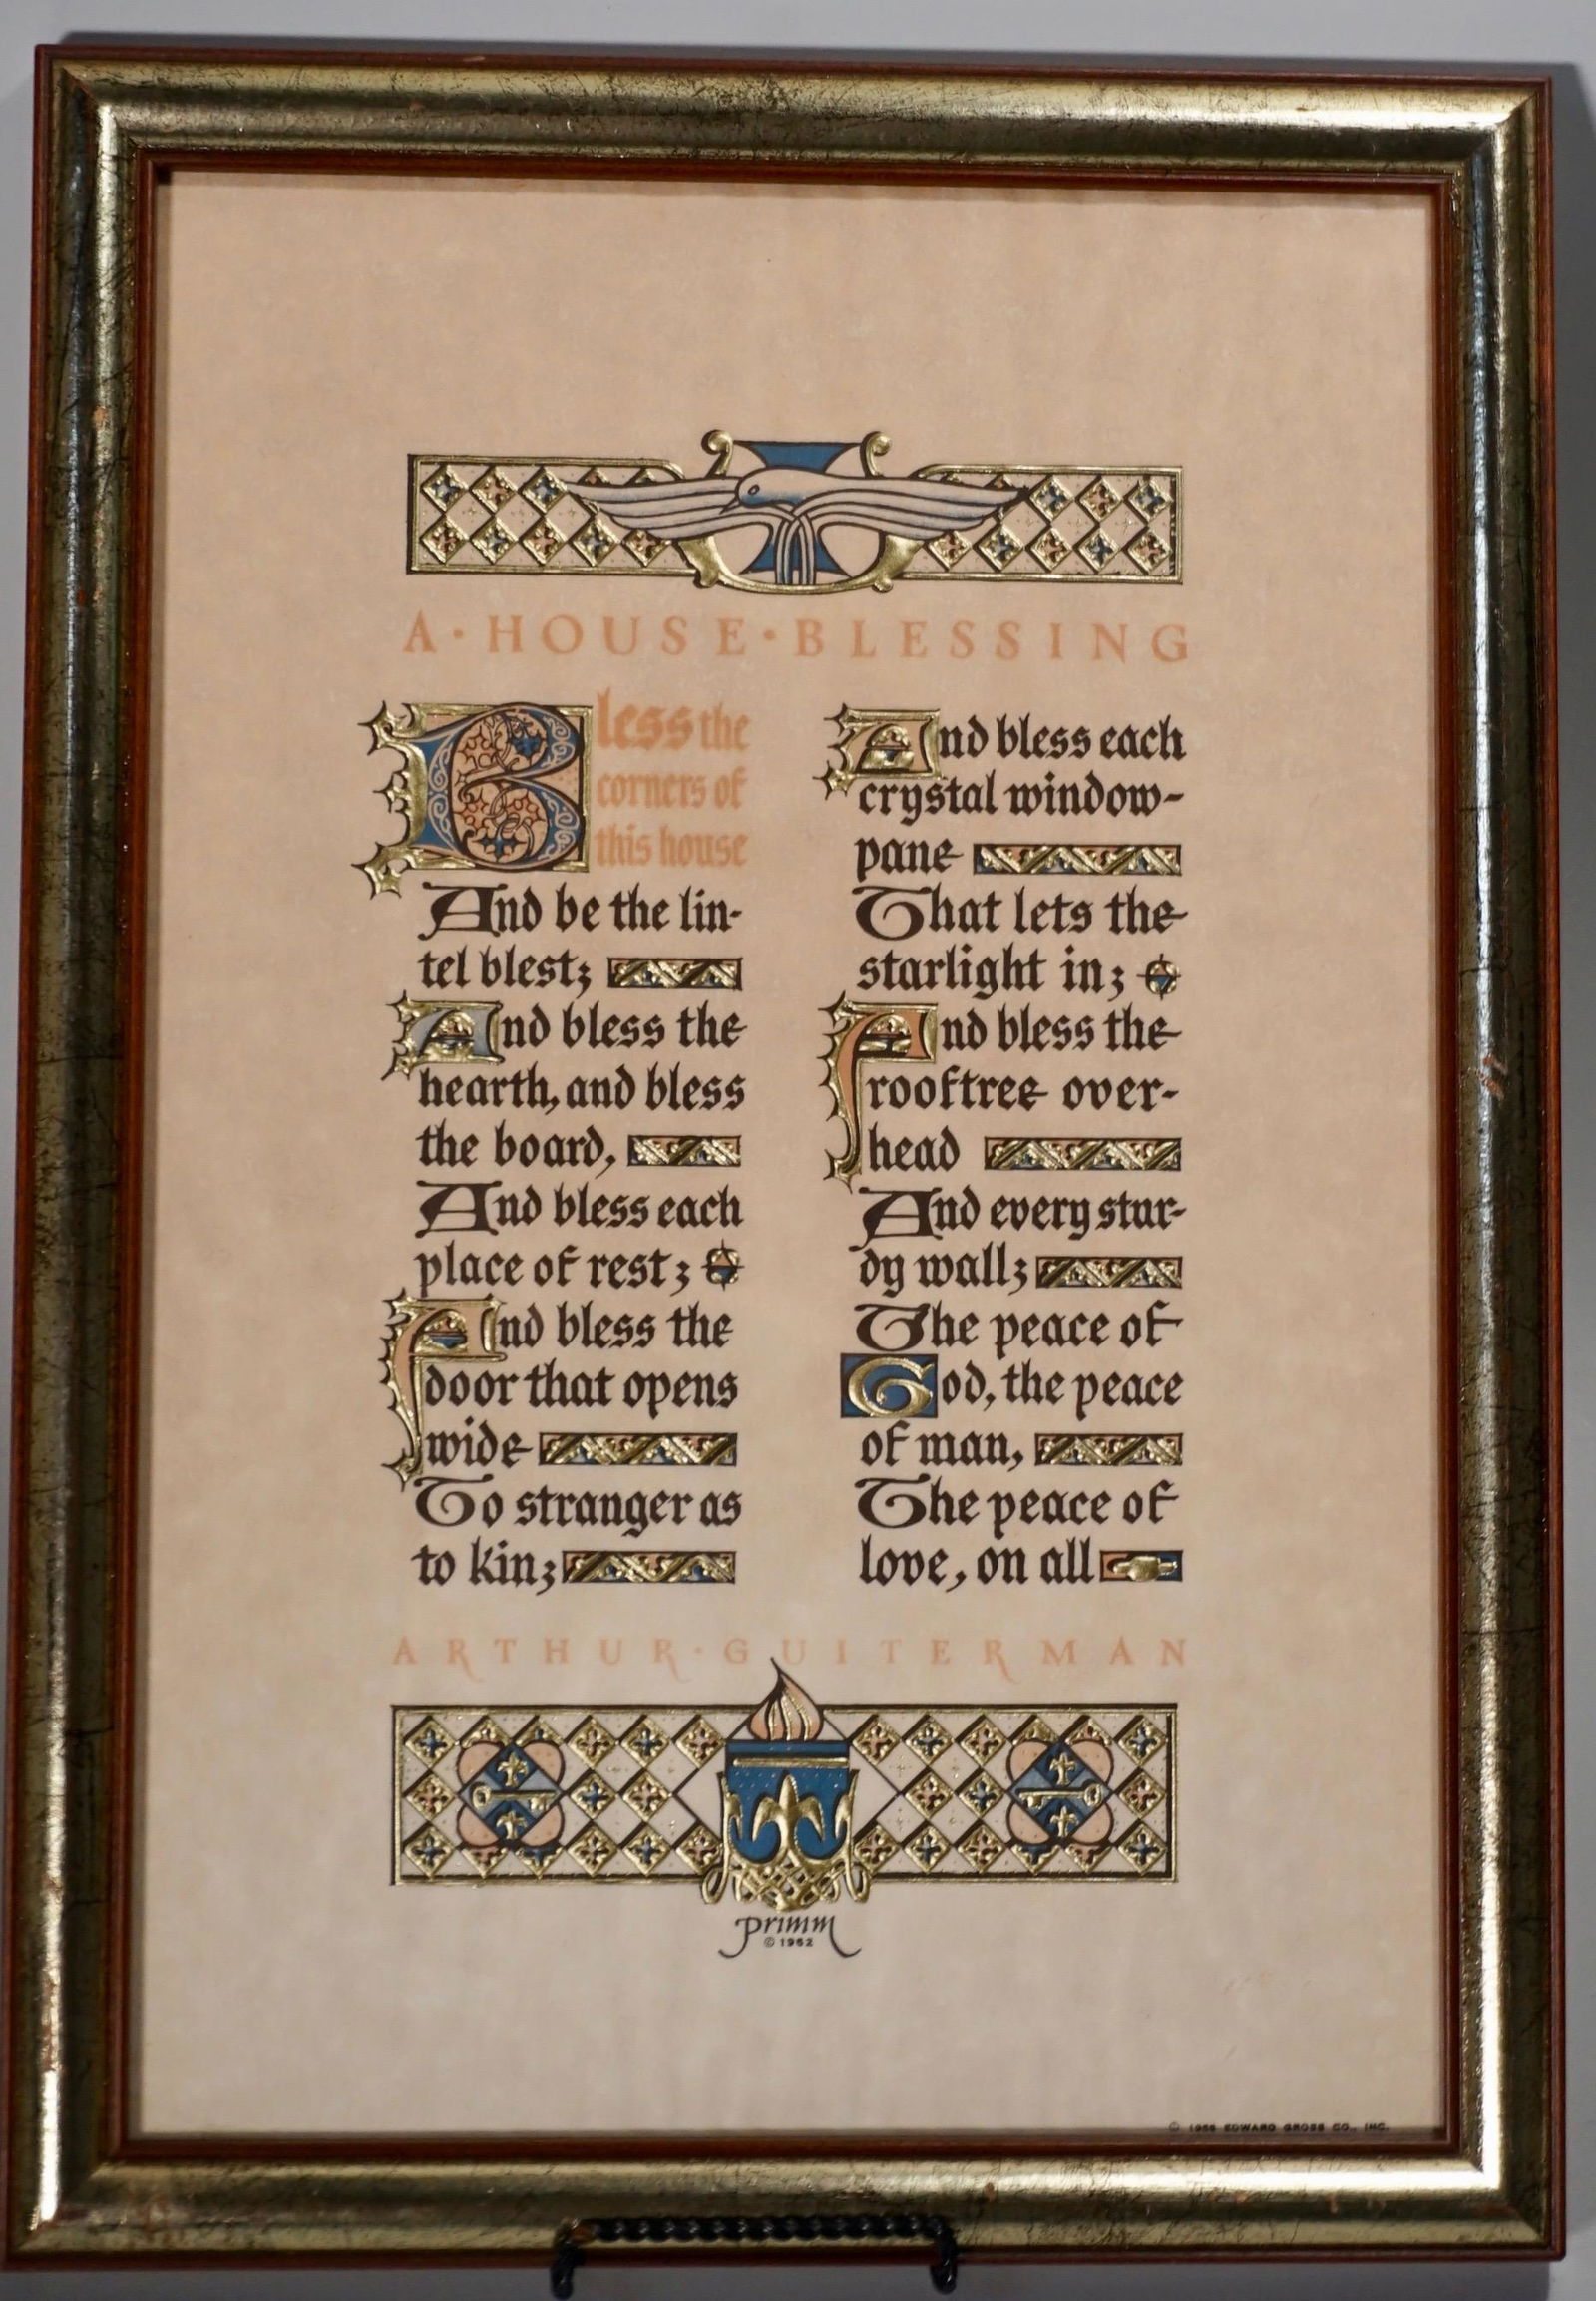 A·HOUSE·BLESSING
Bless the
corners of
this house
And be the lin-
tel blest;
And bless the
hearth, and bless
the board,
And bless each
place of rest;
And bless the
door that opens
wide
To stranger as
to kin;
And bless each
crystal window-
pane
That lets the
starlight in;
And bless the
rooftree over-
head
And every stur-
dy wall;
The peace of
God, the peace
of man,
The peace of
love, on all
ARTHUR·GUITERMAN
Primm
© 1952
© 1956 EDWARD GROSS CO., INC.